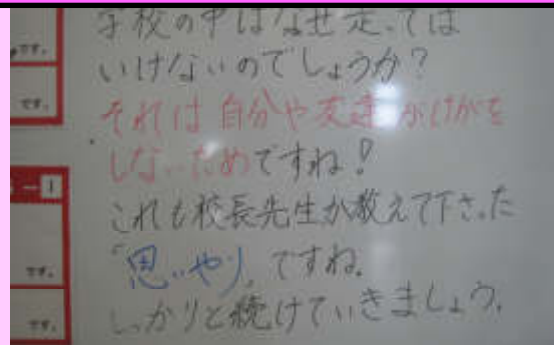 学校の中はなぜ走っては
いけないのでしょうか？
それは自分や友達がけがを
しないためですね！
これも校長先生が教えて下さった
「思いやり」ですね。
しっかりと続けていきましょう。
です。
です。
－1
です。
です。